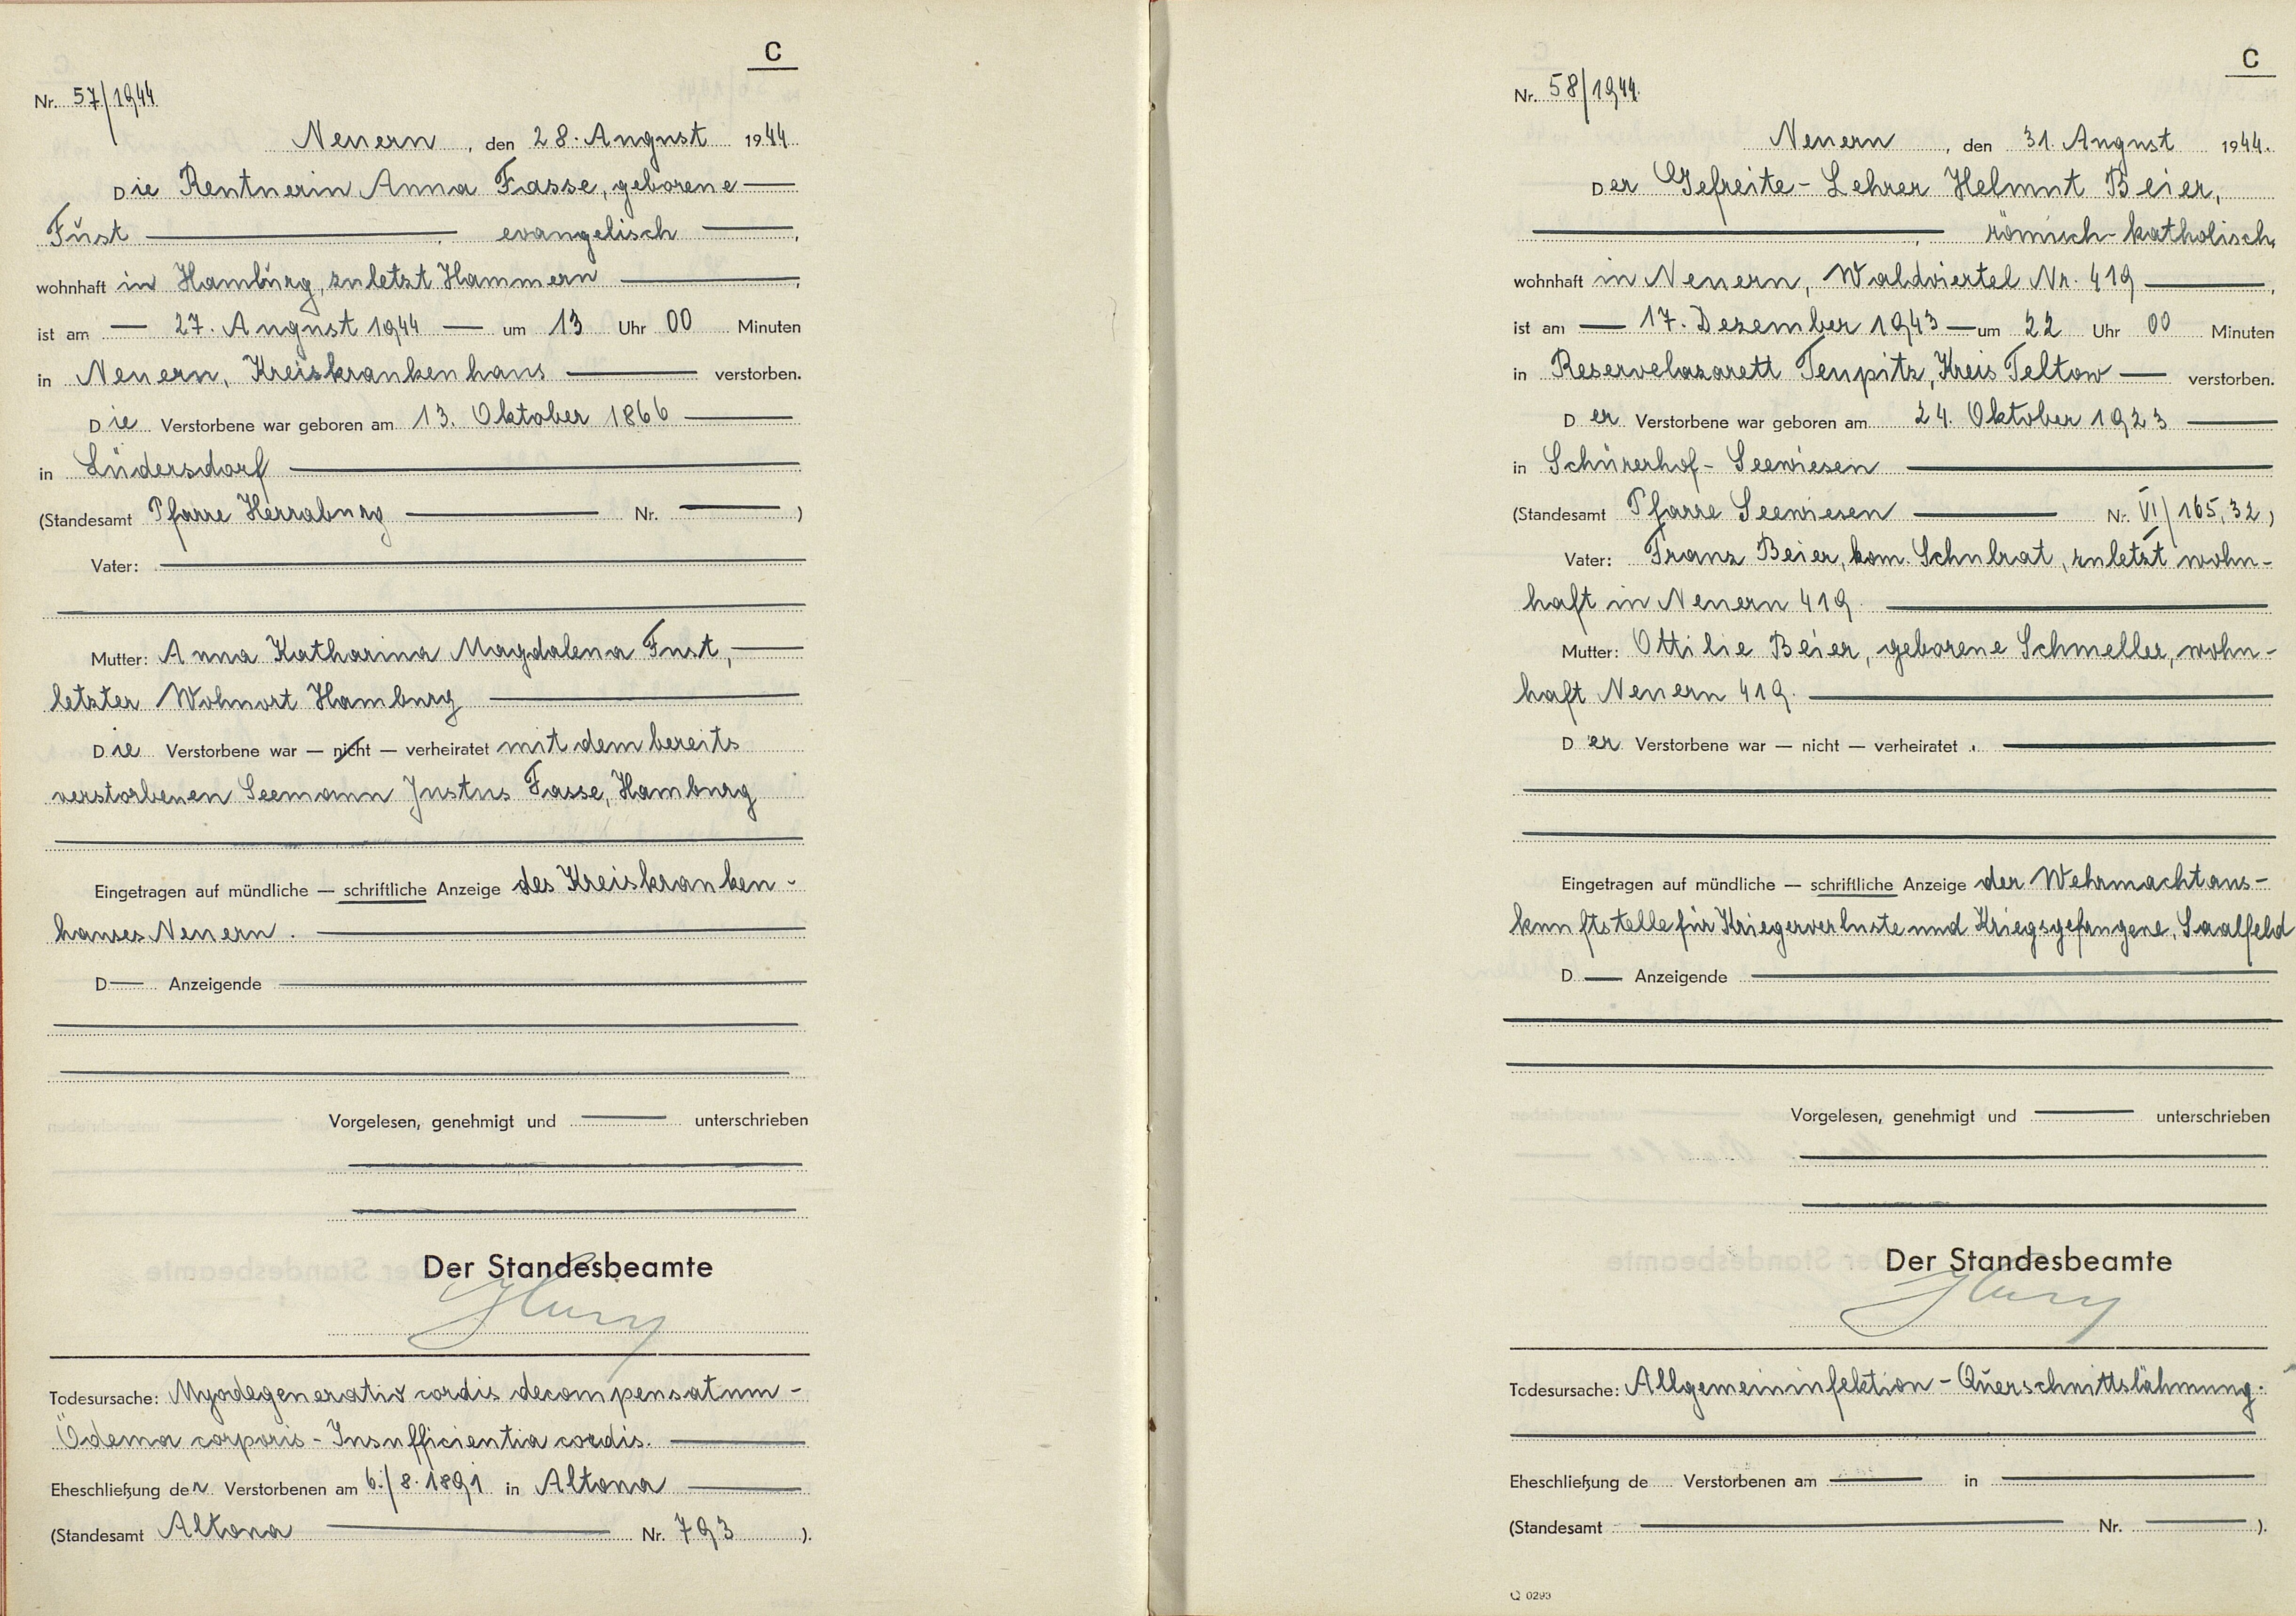 C
Nr. 57/1944
Neuern, den 28. August 1944.
Die Rentnerin Anna Fasse, geborene —
Fust — evangelisch —,
wohnhaft in Hamburg, zuletzt Hammern —,
ist am — 27. August 1944 — um 13 Uhr 00 Minuten
in Neuern, Kreiskrankenhaus — verstorben.
Die Verstorbene war geboren am 13. Oktober 1866 —
in Lüdersdorf —
(Standesamt Pfarre Herrnburg — Nr. —)
Vater: —
Mutter: Anna Katharina Magdalena Fust, —
letzter Wohnort Hamburg —
Die Verstorbene war — nicht — verheiratet mit dem bereits
verstorbenen Seemann Justus Fasse, Hamburg
Eingetragen auf mündliche — schriftliche Anzeige des Kreiskranken-
hauses Neuern. —
D— Anzeigende —
Vorgelesen, genehmigt und — unterschrieben
Der Standesbeamte
Todesursache: Myodegeneratio cordis decompensatum -
Ödema corporis - Insufficientia cordis. —
Eheschließung der Verstorbenen am 6./8. 1891 in Altona —
(Standesamt Altona — Nr. 793).
C
Nr. 58/1944.
Neuern, den 31. August 1944.
Der Gefreite - Lehrer Helmut Beier,
—, — römisch-katholisch,
wohnhaft in Neuern, Waldviertel Nr. 419 —,
ist am — 17. Dezember 1943 — um 22 Uhr 00 Minuten
in Reservelazarett Teupitz, Kreis Teltow — verstorben.
Der Verstorbene war geboren am 24. Oktober 1923 —
in Schürerhof - Seewiesen —
(Standesamt Pfarre Seewiesen — Nr. VI/165,32)
Vater: Franz Beier, kom. Schulrat, zuletzt wohn-
haft in Neuern 419. —
Mutter: Ottilie Beier, geborene Schmeller, wohn-
haft Neuern 419. —
Der Verstorbene war — nicht — verheiratet. —
Eingetragen auf mündliche — schriftliche Anzeige der Wehrmachtaus-
kunftstelle für Kriegerverluste und Kriegsgefangene, Saalfeld
D— Anzeigende —
Vorgelesen, genehmigt und — unterschrieben
Der Standesbeamte
Todesursache: Allgemeininfektion - Querschnittslähmung.
Eheschließung de Verstorbenen am — in —
(Standesamt — Nr. —).
Q 0293